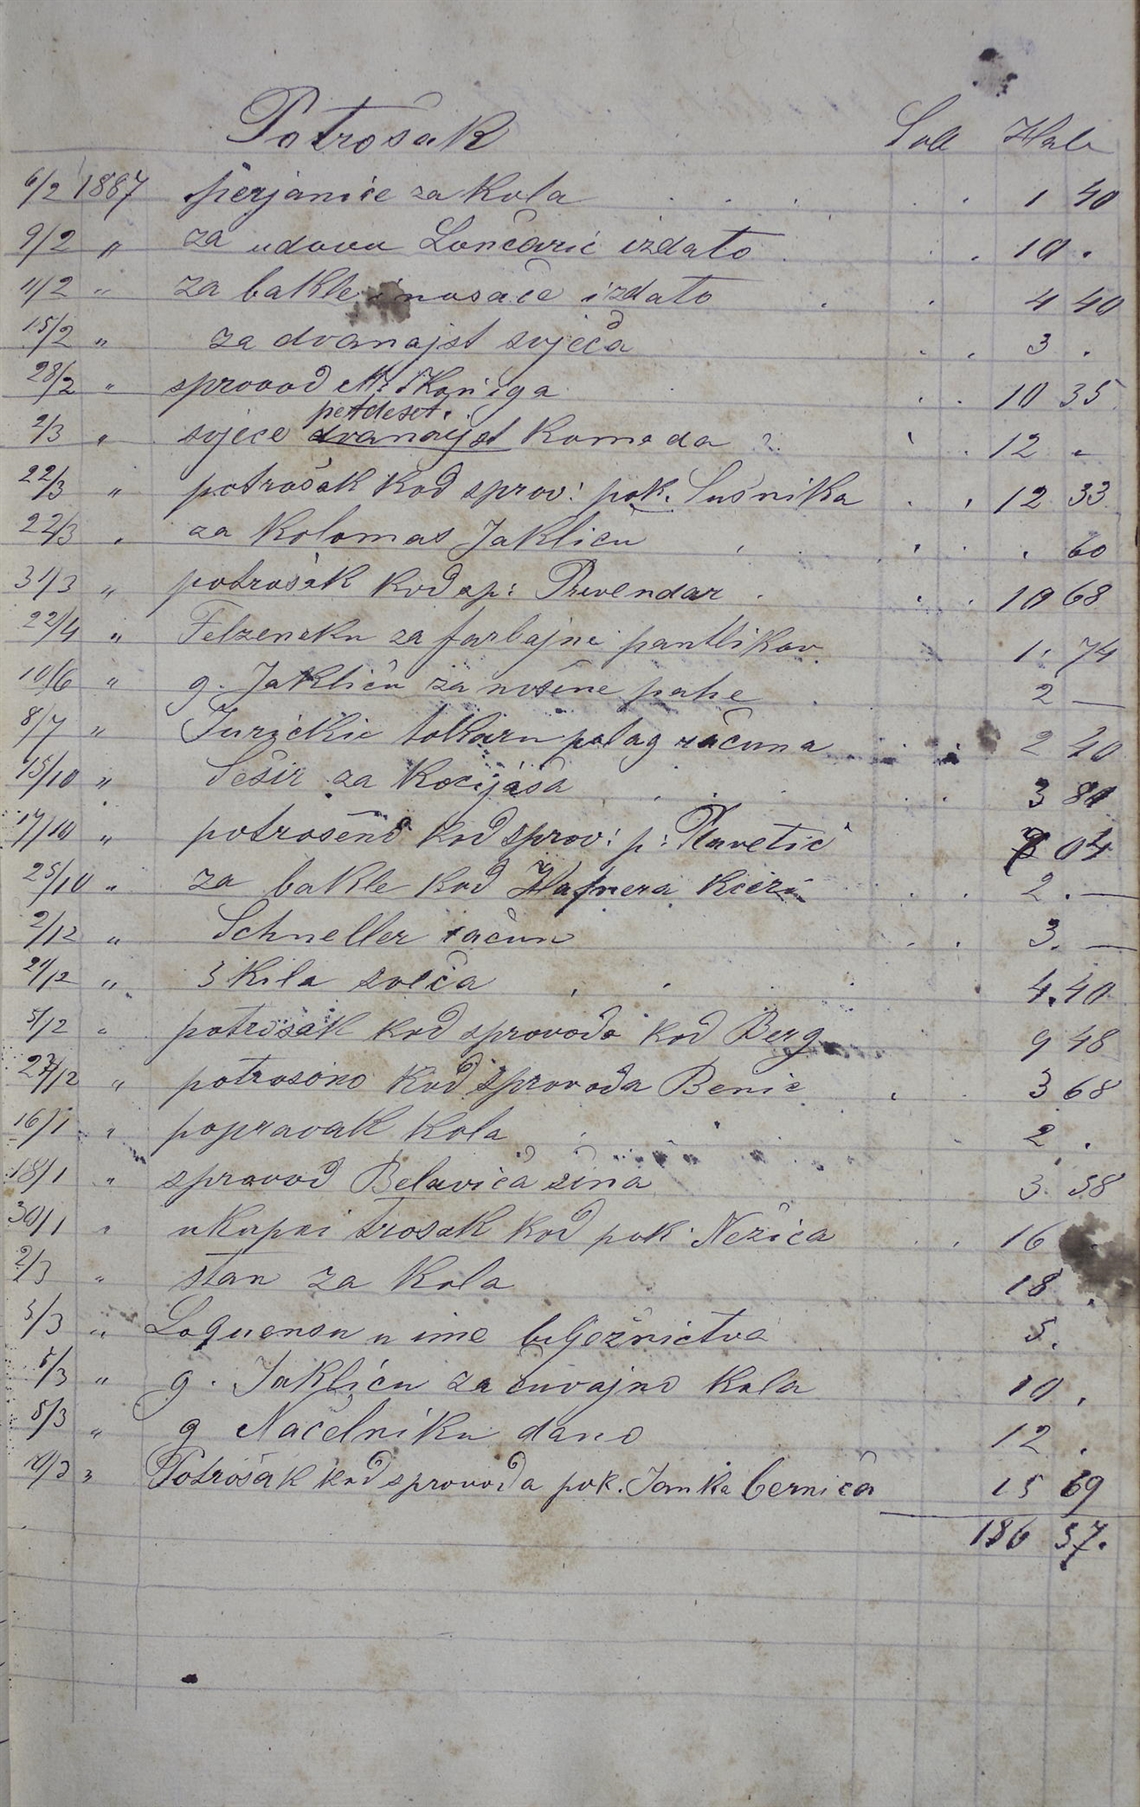 Potrošak Soll Habe
6/2 1887 perjanice za kola . . . . . 1 40
9/2 " za udovu Lončarić izdato . . . 10 .
11/2 " za baklje i nosače izdato . . 4 40
15/2 " za dvanajst svječa . . 3 .
28/2 " sprovod M. Königa . . 10 35
petdeset.
2/3 " svječe dvanajst komada . . 12 .
22/3 " potrošak kod sprov: pok. Sušnika . . 12 33
22/3 " za kolomas Jakliću . . . . 60
31/3 " potrošak kod sp: Prevendar . . . 10 68
22/4 " za farbajne pantlikov 1. 74
10/6 " g. Jakliću za nošene pahe 2 —
8/7 " Turičkiu tokaru polag računa . . 2 40
15/10 " Sešir za kocijaša . . . . 3 80
17/10 " potrošeno kod sprov: p: Plavetić 04
25/10 " za bakle kod Hafnera kćeri . . 2 . —
2/12 " Schneller račun . . 3. —
" 3 kila svеča . . . 4.40
5/12 " potrošak kod sprovoda kod Berg 9 48
27/12 " potrošono kod sprovoda Benić . . 3 68
16/1 " popravak kola . . . 2 .
18/1 " sprovod Belavića sina 3. 58
30/1 " ukupni trošak kod pok. Nežića . . 16
2/3 " stan za kola 18 .
3/3 " u ime bilježnictva 5.
5/3 " g. Jakliću za čuvajno kola 10 .
5/3 " g Načelniku dano 12 .
" Potrošak kod sprovoda pok. Janka Černića 15 69
186 57.